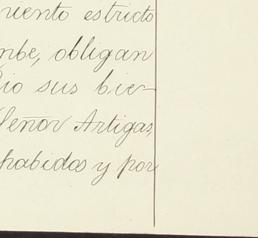 miento estricto
mbe, obligan
io sus bie-
Señor Artigas,
habidos y por